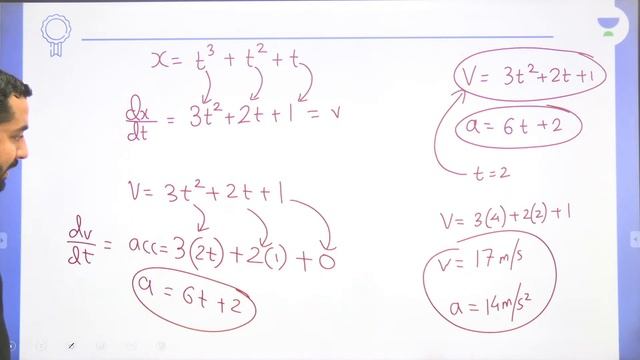 x = t³ + t² + t
dx/dt = 3t² + 2t + 1 = v
V = 3t² + 2t + 1
dv/dt = acc = 3(2t) + 2(1) + 0
a = 6t + 2
V = 3t² + 2t + 1
a = 6t + 2
t = 2
V = 3(4) + 2(2) + 1
v = 17 m/s
a = 14 m/s²